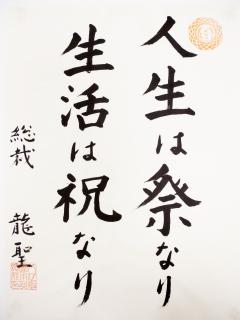 人生は祭なり
生活は祝なり
総裁 龍聖